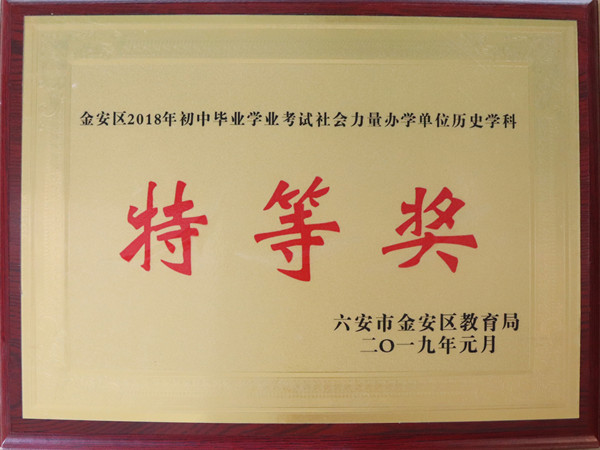 金安区2018年初中毕业学业考试社会力量办学单位历史学科
特等奖
六安市金安区教育局
二〇一九年元月